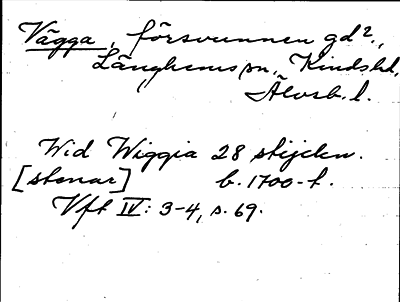 Vägga, försvunnen gd?,
Länghems sn, Kinds hd,
Älvsb. l.
Wid Wiggia 28 stycken.
[stenar] b. 1700-t.
Vft IV: 3-4, s. 69.